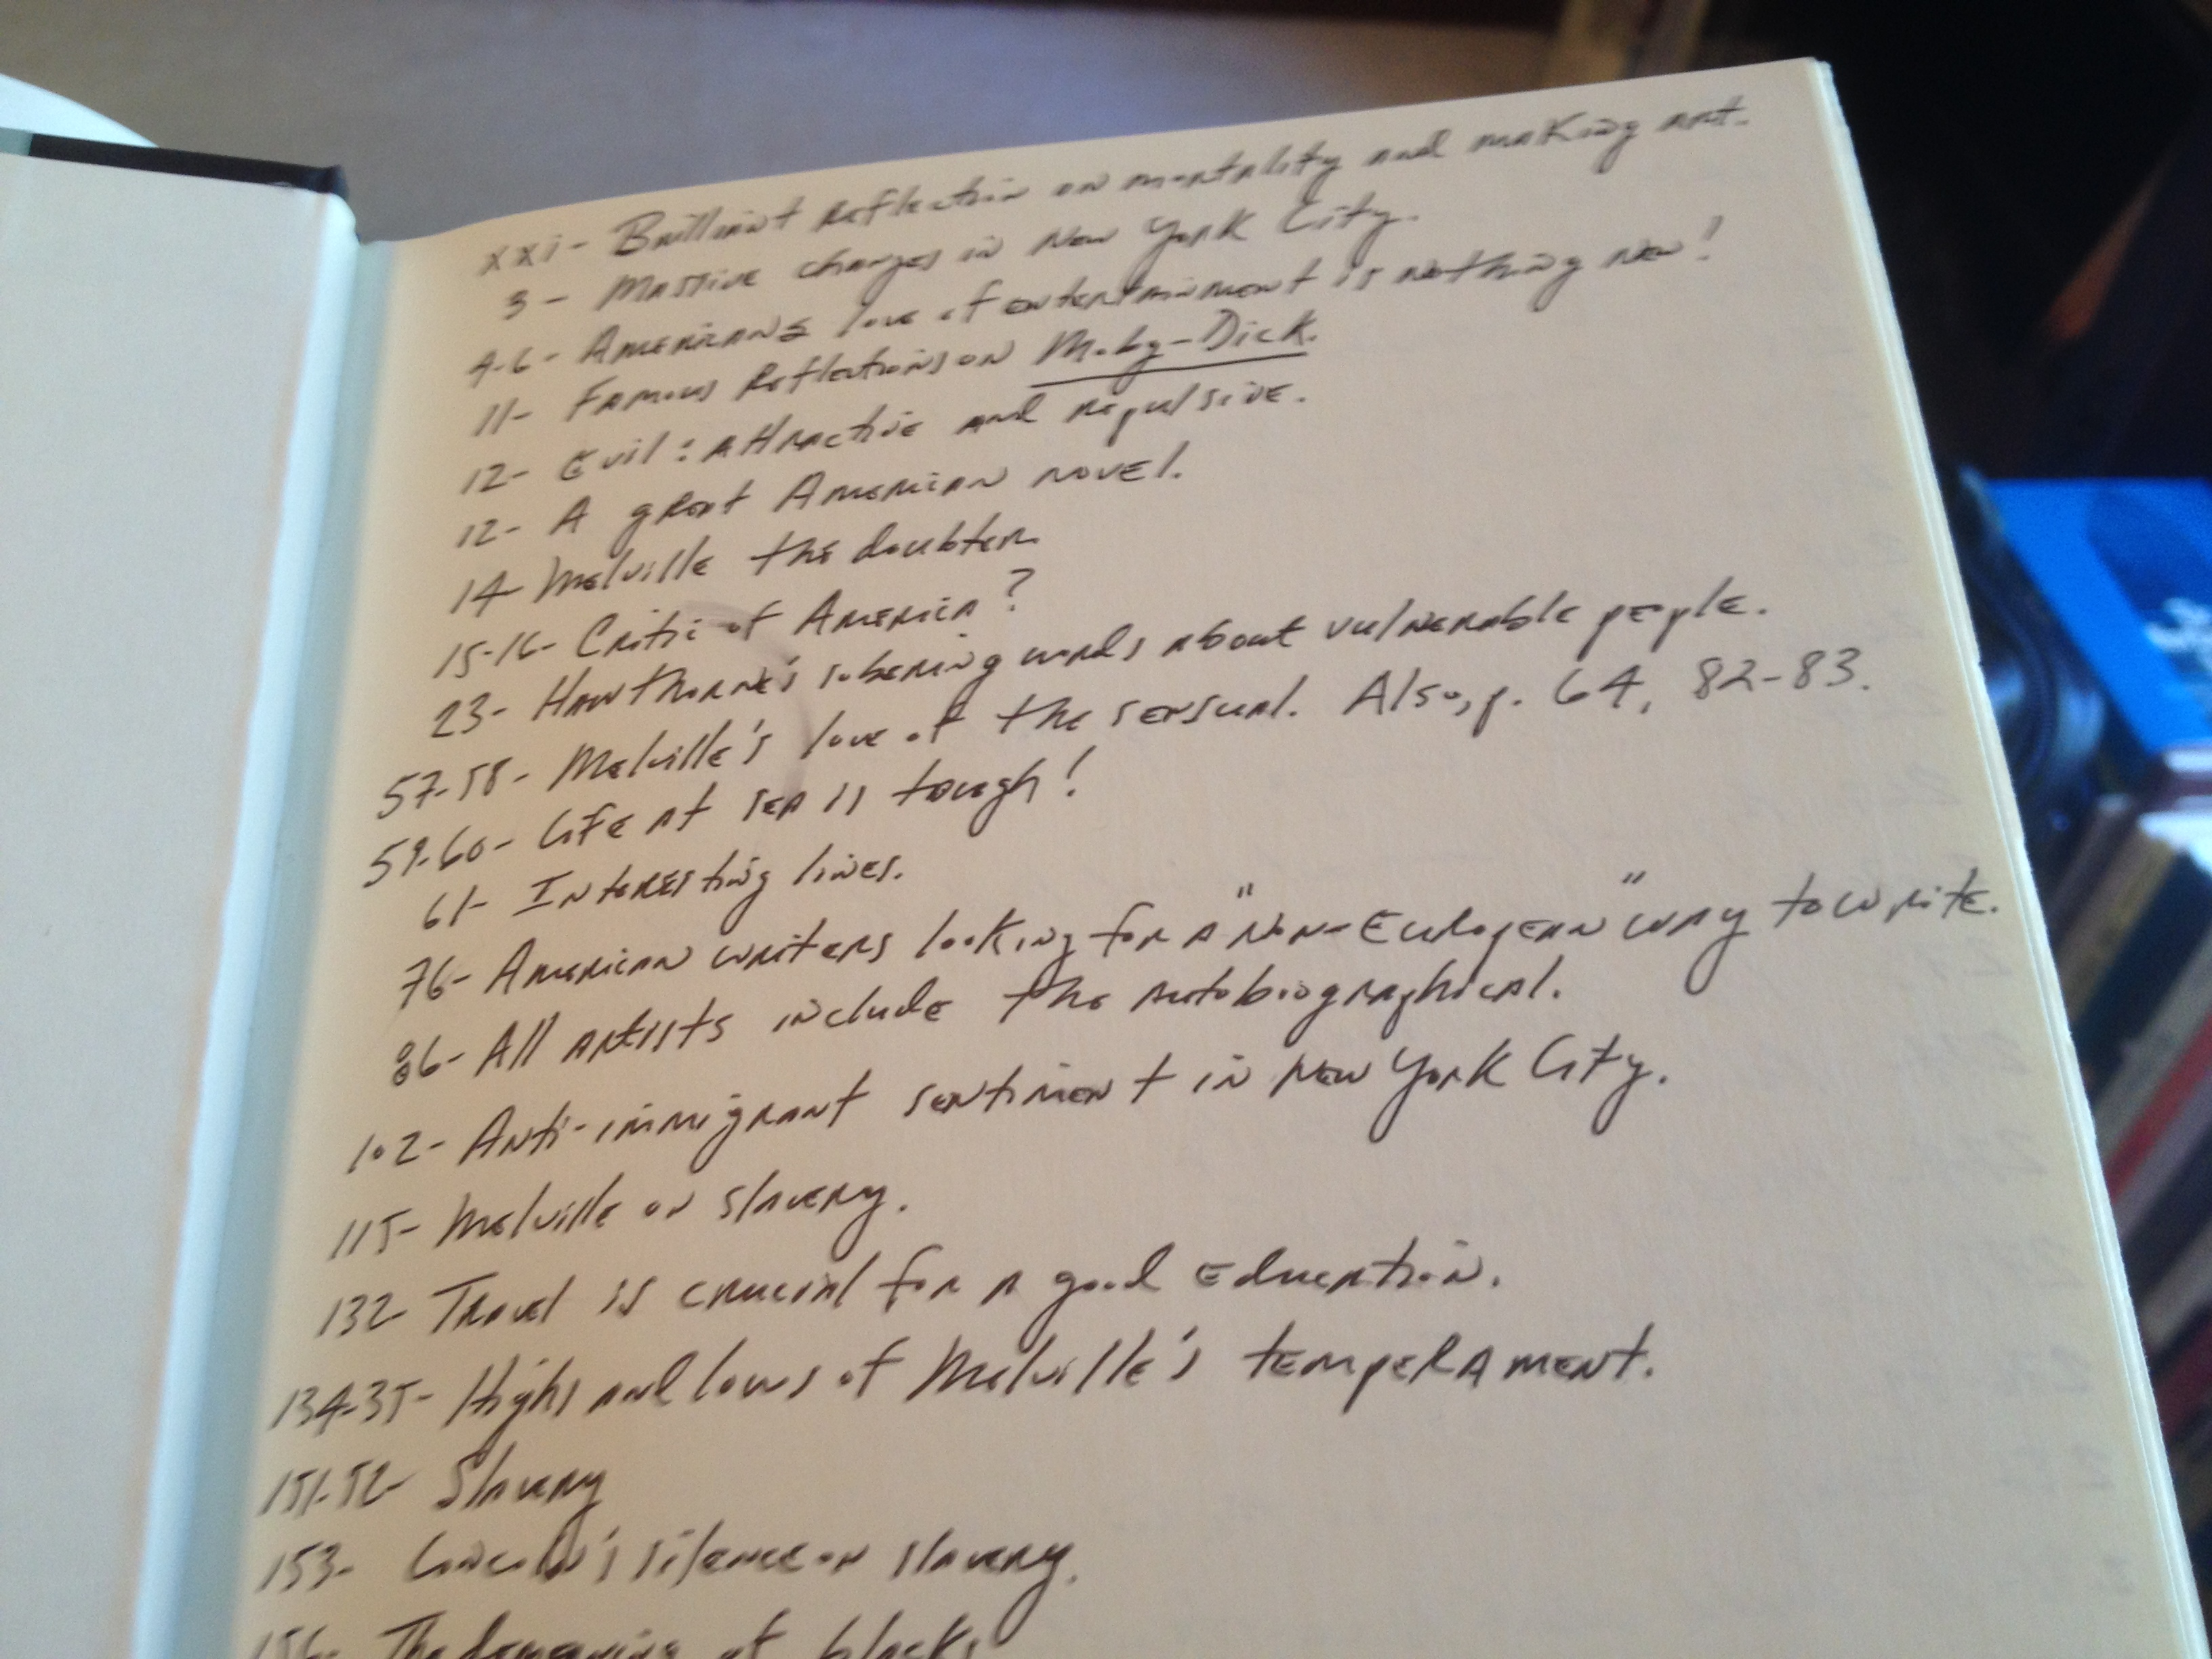 xxi- Brilliant reflection on mortality and making art.
3- Massive changes in New York City.
4-6- Americans love of entertainment is nothing new!
11- Famous Reflections on Moby-Dick.
12- Evil: attractive and repulsive.
12- A great American novel.
14- Melville the doubter.
15-16- Critic of America?
23- Hawthorne's sobering words about vulnerable people.
57-58- Melville's love of the sensual. Also, p. 64, 82-83.
59-60- Life at sea is tough!
61- Interesting lines.
76- American writers looking for a "Non-European" way to write.
86- All artists include the autobiographical.
102- Anti-immigrant sentiment in New York City.
115- Melville on slavery.
132- Travel is crucial for a good education.
134-35- Highs and lows of Melville's temperament.
151-52- Slavery
153- Lincoln's silence on slavery.
156- The demeaning of blacks